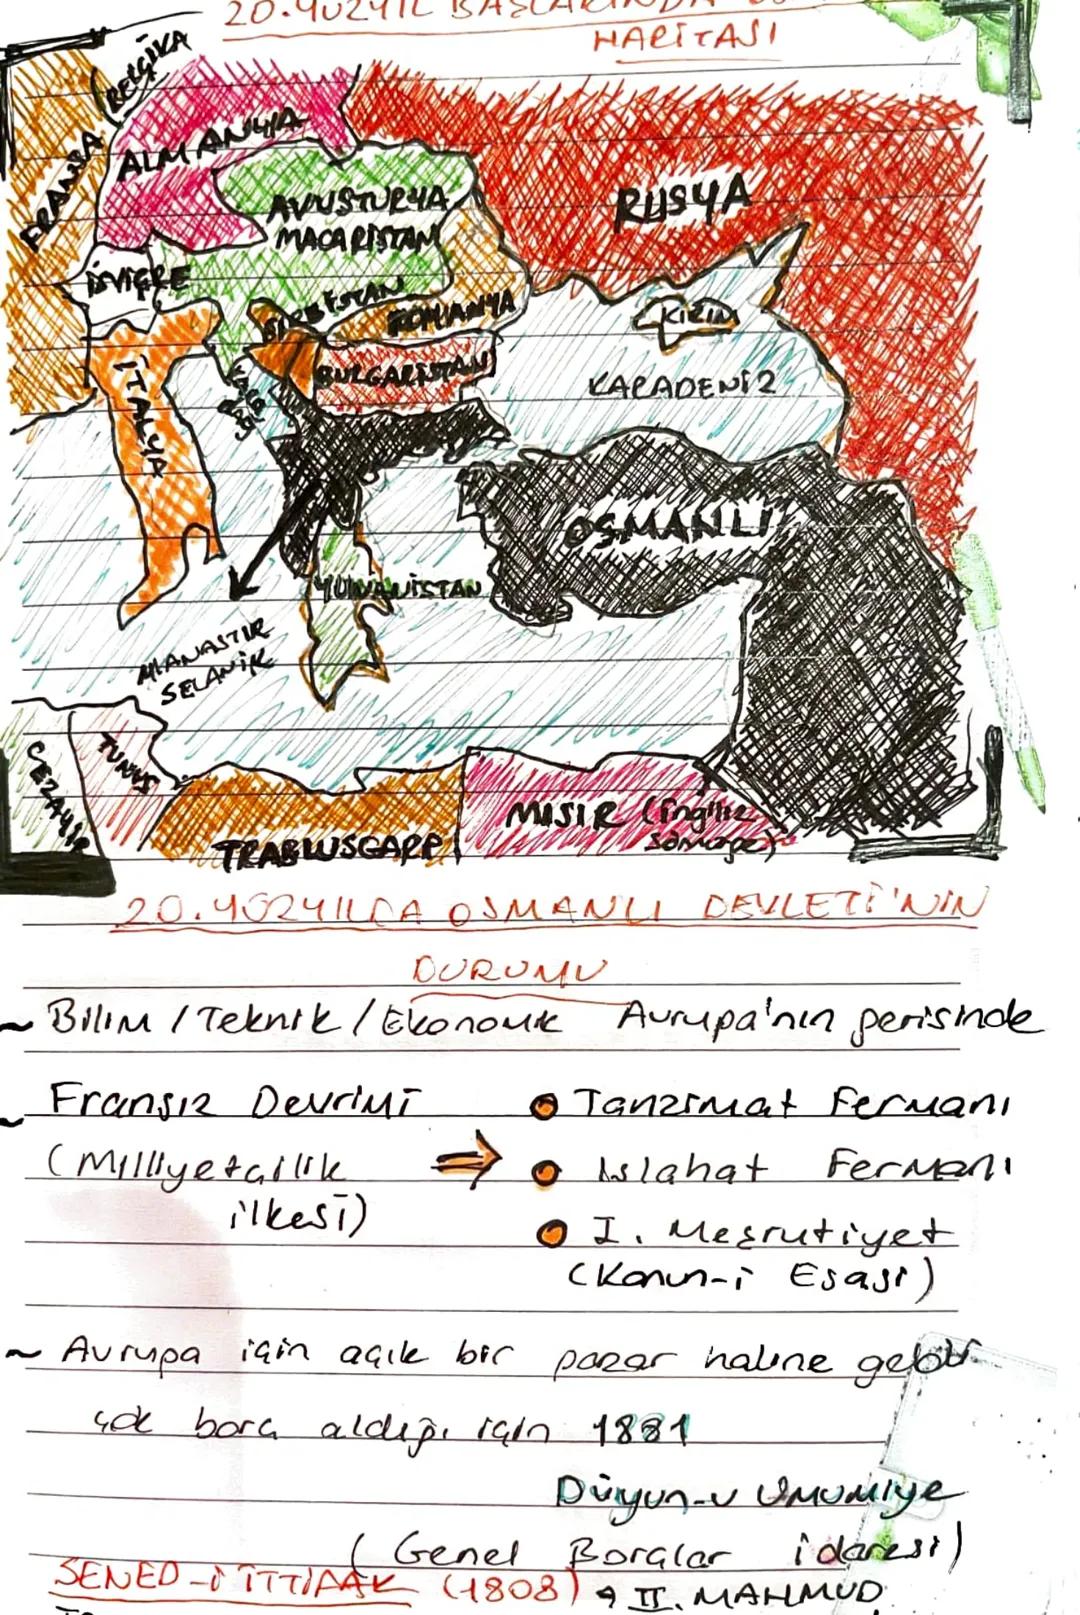 20.YÜZYIL BAŞLARINDA
HARİTASI
BELÇİKA
FRANSA
ALMANYA
RUSYA
AVUSTURYA
MACARİSTAN
İSVİÇRE
SIRBİSTAN
ROMANYA
KIRIM
İTALYA
BULGARİSTAN
KARADENİZ
KARA
DAĞ
OSMANLI
YUNANİSTAN
MANASTIR
SELANİK
CEZAYİR
TUNUS
TRABLUSGARP
MISIR (ingiliz
sömürgesi)
20.YÜZYILDA OSMANLI DEVLETİ'NİN
DURUMU
~ Bilim / Teknik / Ekonomik Avrupa'nın gerisinde
~ Fransız Devrimi
(Milliyetçilik
ilkesi)
⇒
● Tanzimat Fermanı
● Islahat Fermanı
● I. Meşrutiyet
(Kanun-i Esasi)
~ Avrupa için açık bir pazar haline gelir
çok borç aldığı için 1881
Düyun-u Umumiye
(Genel Borçlar idaresi)
SENED-İ İTTİFAK (1808) → II. MAHMUD